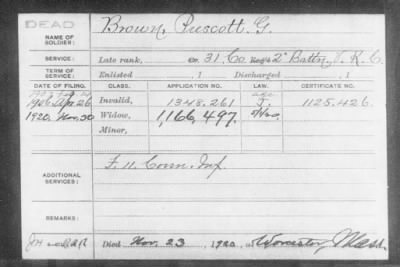 DEAD
NAME OF SOLDIER:
Brown, Prescott, G.
SERVICE:
Late rank, Co. 31, Co Reg't 2" Battn, V. R. C.
TERM OF SERVICE:
Enlisted , 1 Discharged , 1
DATE OF FILING. CLASS. APPLICATION NO. LAW. CERTIFICATE NO.
1906 26 Invalid, 1348.261 1125.426
1920. Nov. 30 Widow, 1,166,497.
Minor,
ADDITIONAL SERVICES:
F. 11. Conn. Inf.
REMARKS:
Died Nov. 23, 1920, at Worcester, Mass.